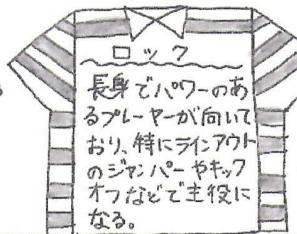 ロック
長身でパワーのあ
るプレーヤーが向いて
おり、特にラインアウト
のジャンパーやキック
オフなどで主役に
なる。